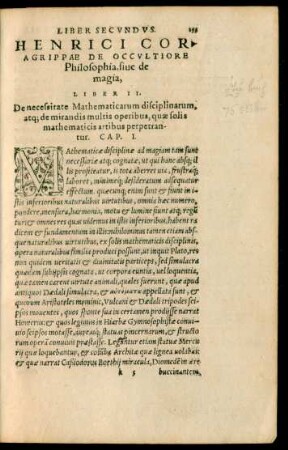 LIBER SECVNDVS.
HENRICI COR-
AGRIPPAE DE OCCVLTIORE
Philosophia, siue de
magia,
LIBER II.
De necessitate Mathematicarum disciplinarum,
atq; de mirandis multis operibus, quæ solis
mathematicis artibus perpetran-
tur. CAP. I.
MAthematicæ disciplinæ ad magiam tam sunt
necessariæ atq; cognatæ, ut qui hanc absq; il-
lis profiteatur, is tota aberret uia, frustraq;
laboret, minimeq; desideratum assequatur
effectum. quæcunq; enim sunt & fiunt in
istis inferioribus naturalibus uirtutibus, omnia hæc numero,
pondere, mensura, harmonia, motu & lumine fiunt atq; regũ
tur: & omnes res quas uidemus in istis inferioribus, habent ra
dicem & fundamentum in illis. nihilominus tamen etiam abs-
que naturalibus uirtutibus, ex solis mathematicis disciplinis,
opera naturalibus similia produci possunt, ut inquit Plato, res
non quidem ueritatis & diuinitatis participes, sed simulacra
quædam sibijpsis cognata, ut corpora euntia, uel loquentia,
quæ tamen careant uirtute animali, quales fuerunt, quæ apud
antiquos Dædali simulacra, & appellata sunt, &
quorum Aristoteles meminit, Vulcani & Dædali tripodes sei-
psos mouentes, quos sponte sua in certamen prodijsse narrat
Homerus: & quos legimus in Hiarbæ Gymnosophistæ conui-
uio seipsos mouisse, atq; statuas pincernarum, & structo-
rum opera conuiuis præstasse. Leguntur etiam statuæ Mercu
rij quæ loquebantur, & columba Architæ quæ lignea uolabat:
& quæ narrat Cassiodorus Boethij miracula, Diomedẽ in ære
k 5 buccinantem,